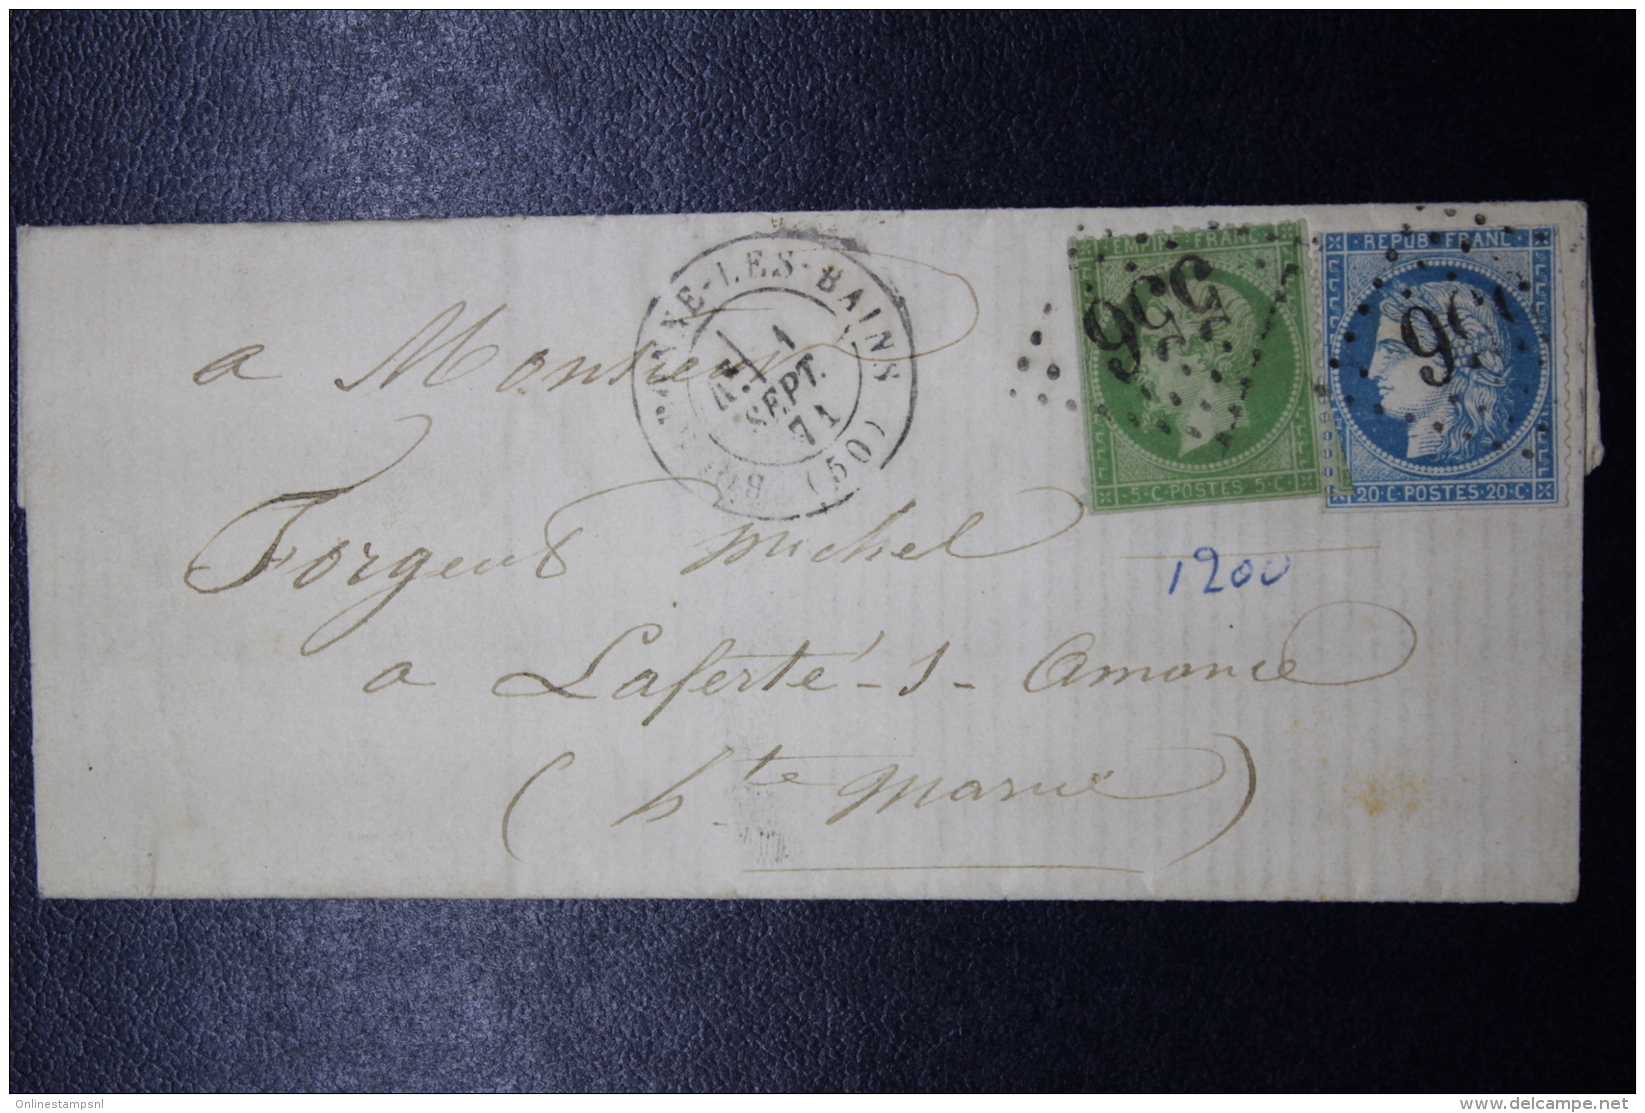 BOURBONNE-LES-BAINS (50)
1
SEPT.
71
EMPIRE FRANC
5·C·POSTES 5·C·
556
REPUB·FRANC·
20·C·POSTES·20·C·
56
a Monsieur
Forgeot Michel
1200
a Laferté-s-Amance
(hte Marne)
Onlinestampsnl
www.delcampe.net